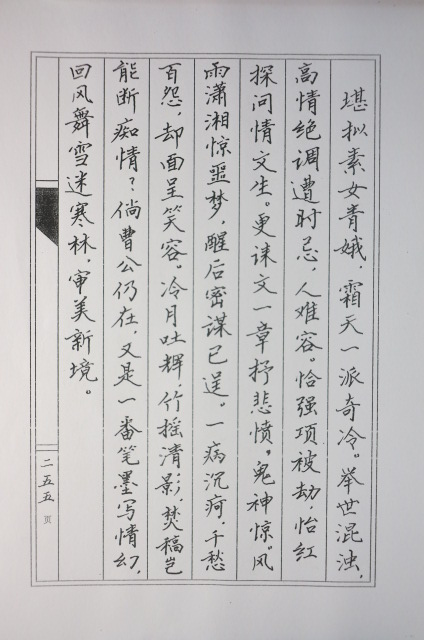 堪拟素女青娥，霜天一派奇冷。举世混浊，
高情绝调遭时忌，人难容。恰强项被劫，怡红
探问情文生。更诔文一章抒悲愤，鬼神惊。风
雨潇湘惊噩梦，醒后密谋已逞。一病沉疴，千愁
百怨，却面呈笑容。冷月吐辉，竹摇清影，焚稿岂
能断痴情？倘曹公仍在，又是一番笔墨写情幻，
回风舞雪迷寒林，审美新境。
二五五页